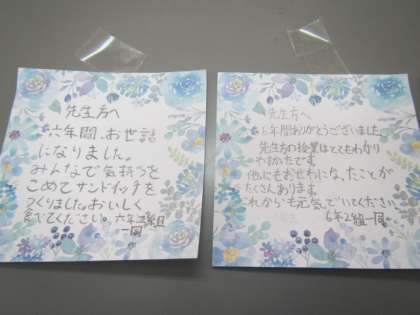 先生方へ
六年間、お世話
になりました。
みんなで気持ちを
こめてサンドイッチを
つくりました。おいしく
食べてください。六年2組
一同
先生方へ
6年間ありがとうございました。
先生方の授業はとてもわかり
やすかたです
他にもおせわになったことが
たくさんあります
これからも元気でいてください
6年2組一同